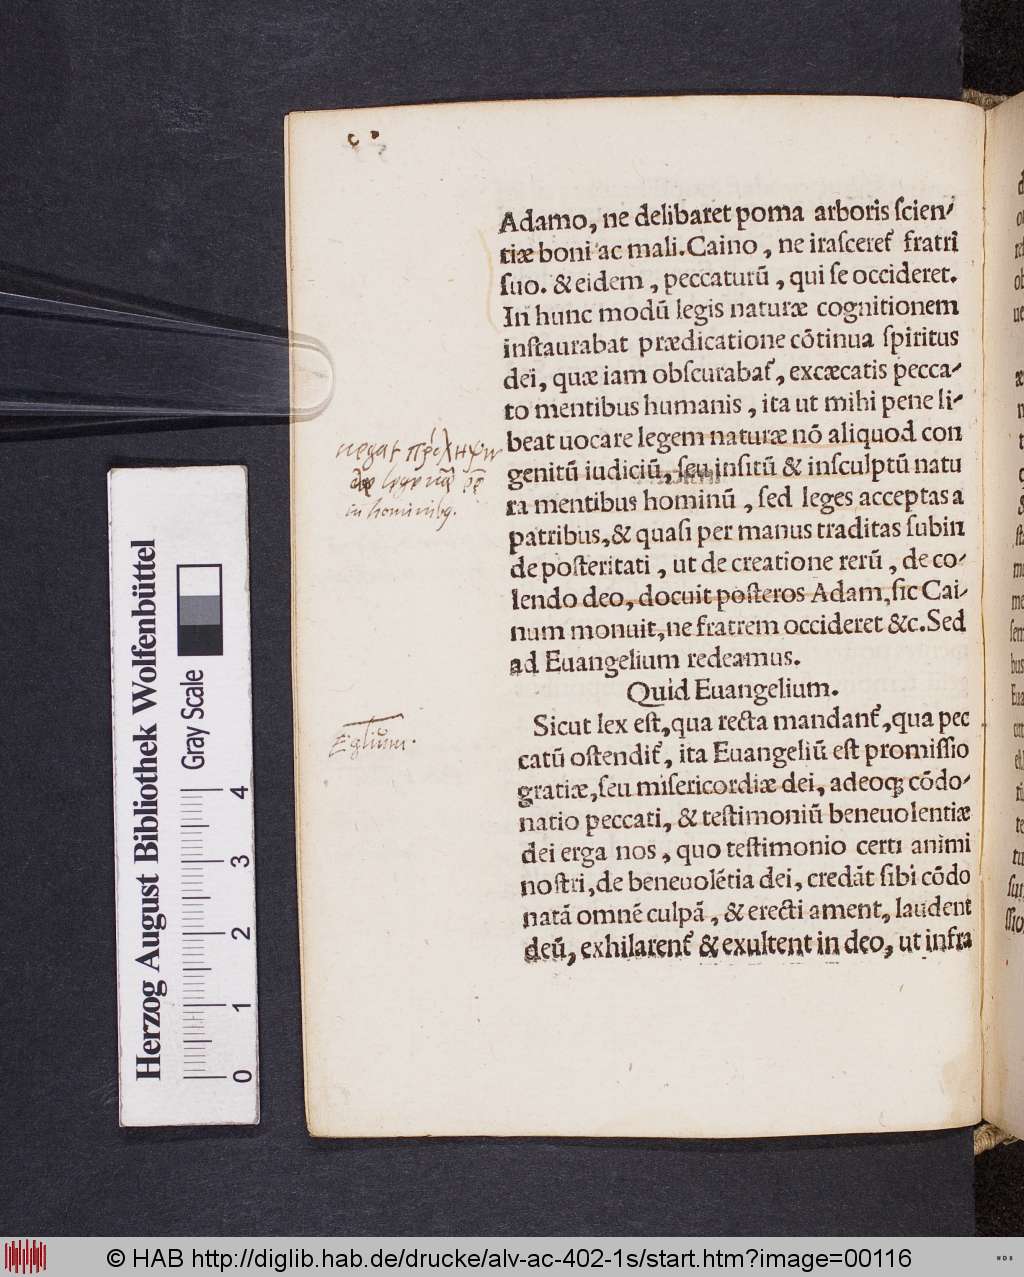 Adamo, ne delibaret poma arboris ſcien⸗
tiæ boni ac mali. Caino, ne iraſceret᷑ fratri
ſuo. & eidem, peccaturũ, qui ſe occideret.
In hunc modũ legis naturæ cognitionem
inſtaurabat prædicatione cõtinua ſpiritus
dei, quæ iam obſcurabat᷑, excæcatis pecca⸗
to mentibus humanis, ita ut mihi pene li⸗
beat uocare legem naturæ nõ aliquod con
genitũ iudiciũ, ſeu inſitũ & inſculptũ natu
ra mentibus hominũ, ſed leges acceptas a
patribus, & quaſi per manus traditas ſubin
de poſteritati, ut de creatione rerũ, de co⸗
lendo deo, docuit poſteros Adam, ſic Cai⸗
num monuit, ne fratrem occideret &c. Sed
ad Euangelium redeamus.
Quid Euangelium.
Sicut lex eſt, qua recta mandant᷑, qua pec
catũ oſtendit᷑, ita Euangeliũ eſt promiſſio
gratiæ, ſeu miſericordiæ dei, adeoq; cõdo⸗
natio peccati, & teſtimoniũ beneuolentiæ
dei erga nos, quo teſtimonio certi animi
noſtri, de beneuolẽtia dei, credãt ſibi cõdo
natã omnẽ culpã, & erecti ament, laudent
deũ, exhilarent᷑ & exultent in deo, ut infra
negat
in hominibq.
Eglium.
Herzog August Bibliothek Wolfenbüttel
Gray Scale
0 1 2 3 4
© HAB http://diglib.hab.de/drucke/alv-ac-402-1s/start.htm?image=00116